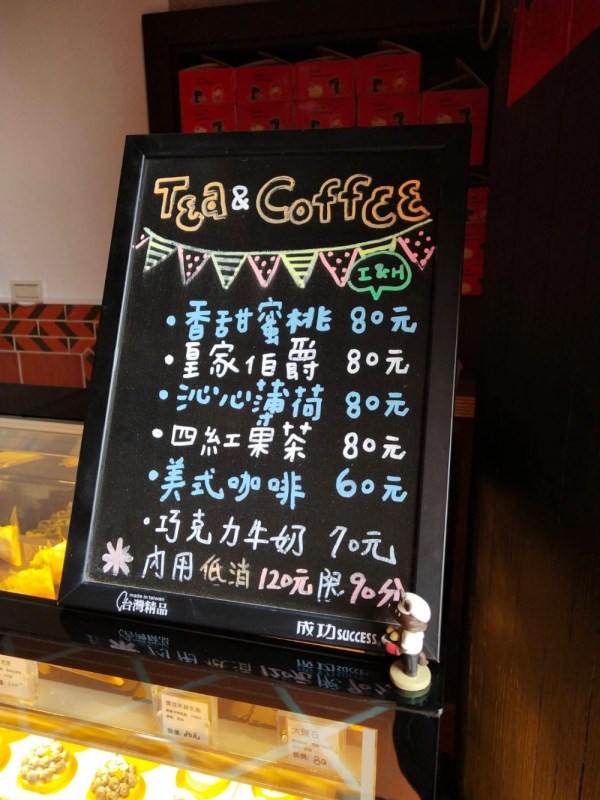 Tea & Coffee
I & H
・香甜蜜桃 80元
・皇家伯爵 80元
・沁心薄荷 80元
・四紅果茶 80元
・美式咖啡 60元
・巧克力牛奶 70元
內用低消120元限90分
made in taiwan
台灣精品
成功SUCCESS
80